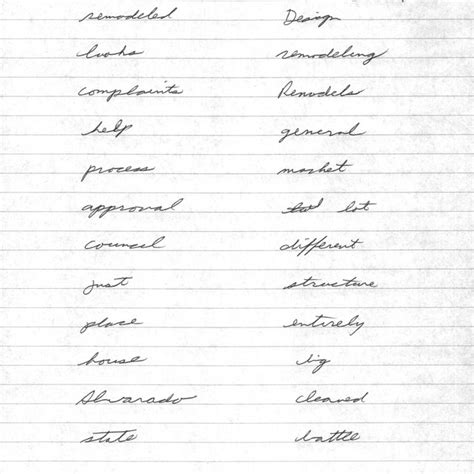 remodeled Design
looks remodeling
complaints Remodels
help general
process market
approval lot
council different
just structure
place entirely
house big
Alvarado cleaved
state battle